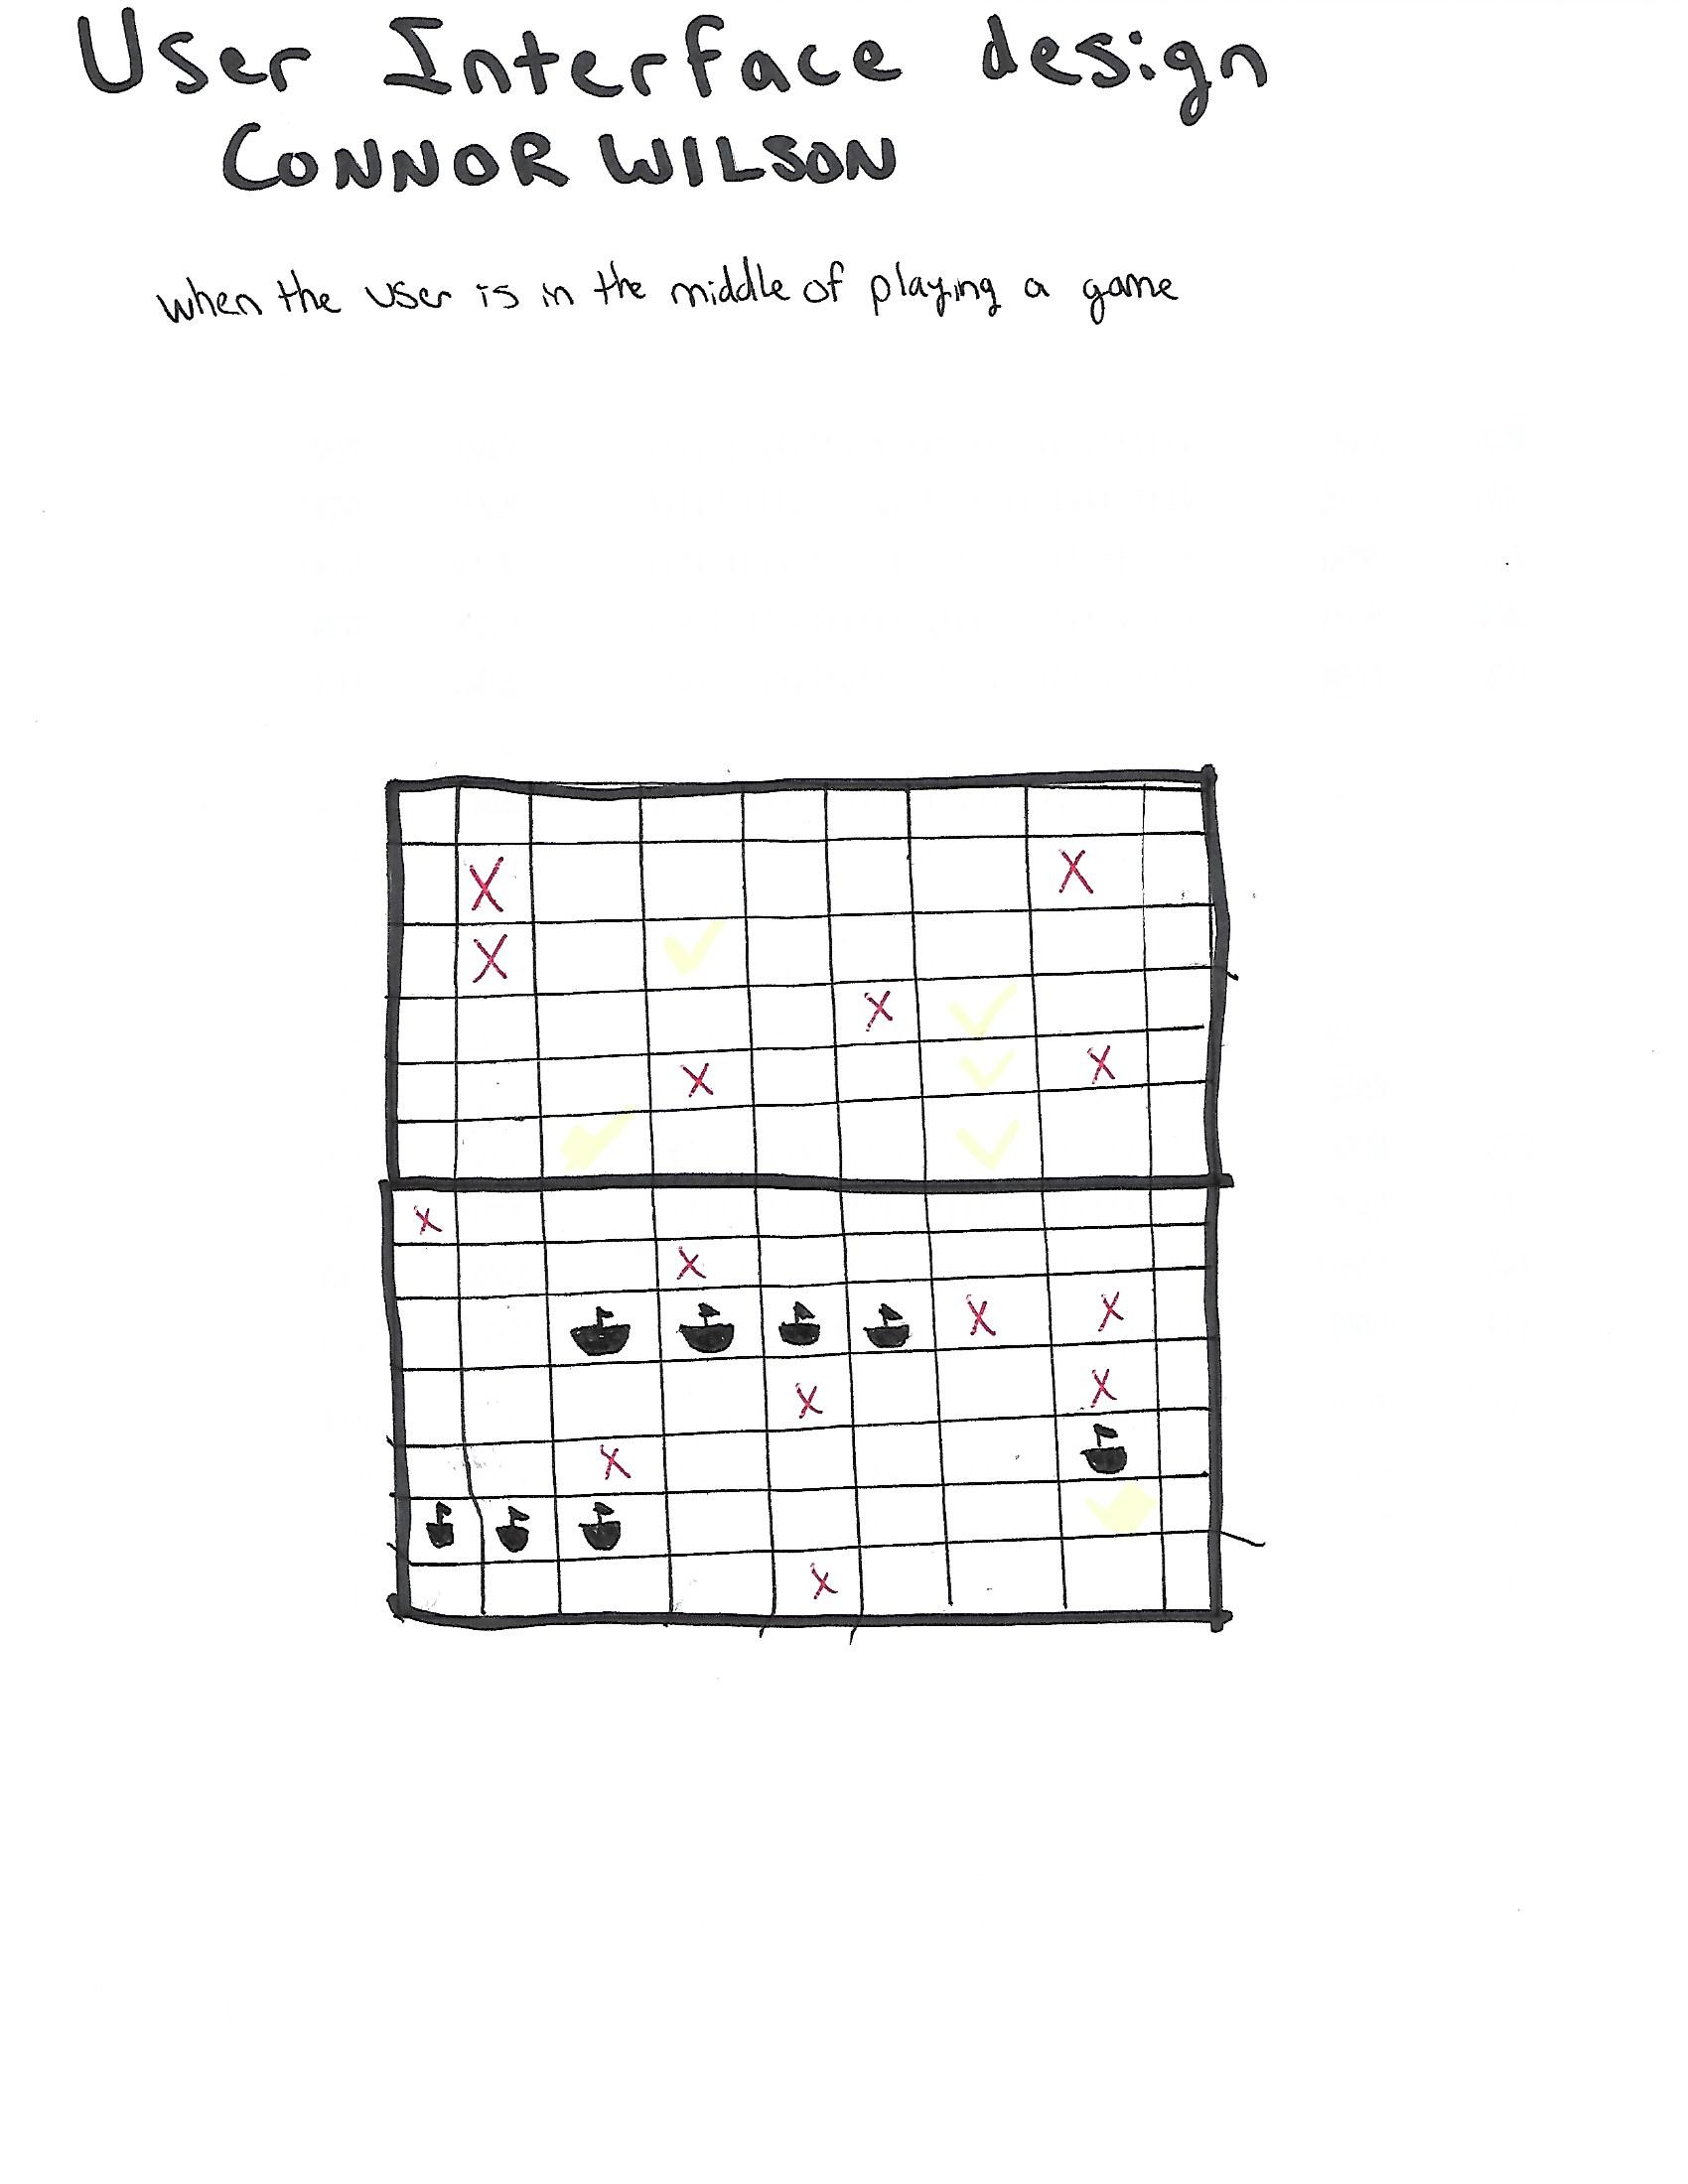 User Interface design
CONNOR WILSON
when the user is in the middle of playing a game